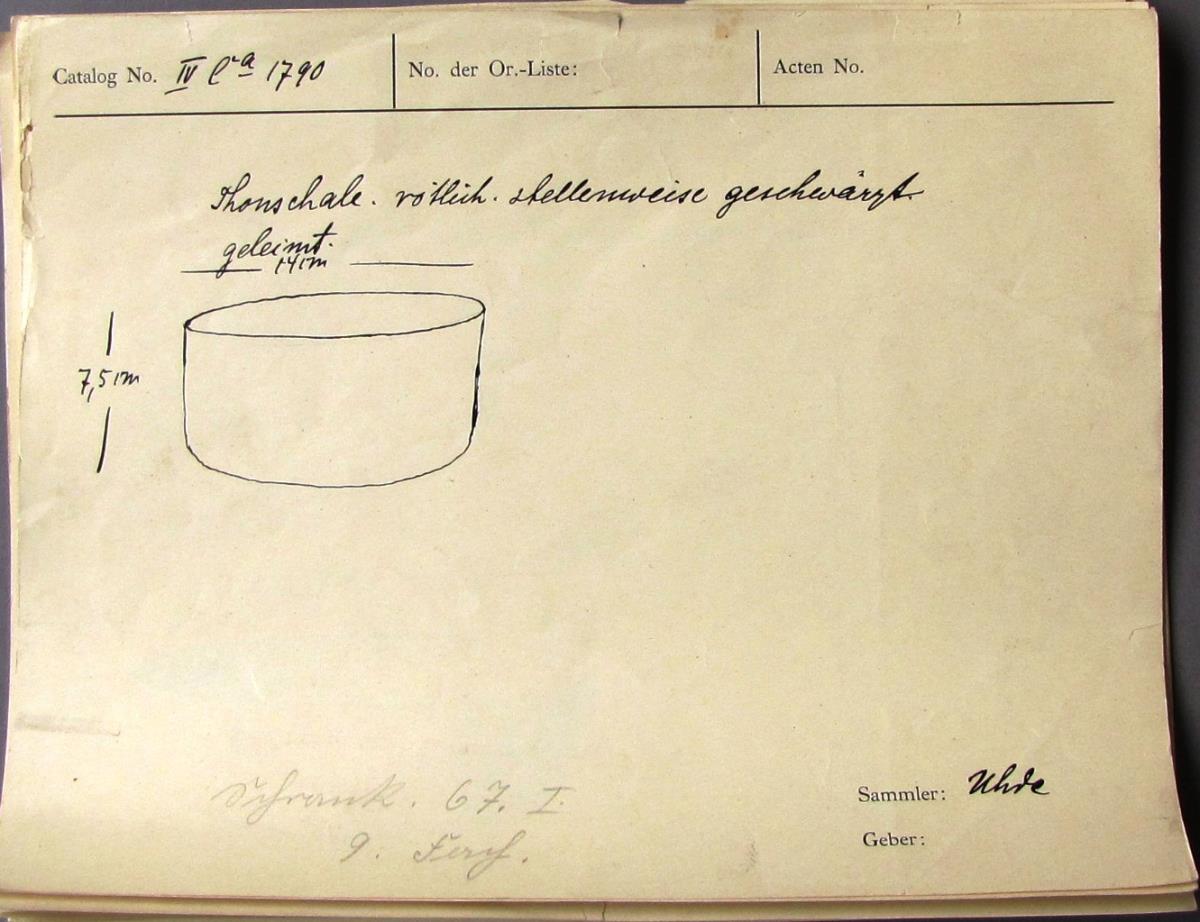 Catalog No. IV Ca 1790
No. der Or.-Liste:
Acten No.
Thonschale. rötlich. stellenweise geschwärzt.
geleimt.
14cm
7,5cm
Schrank. 67. I.
9. Fach.
Sammler: Uhde
Geber: